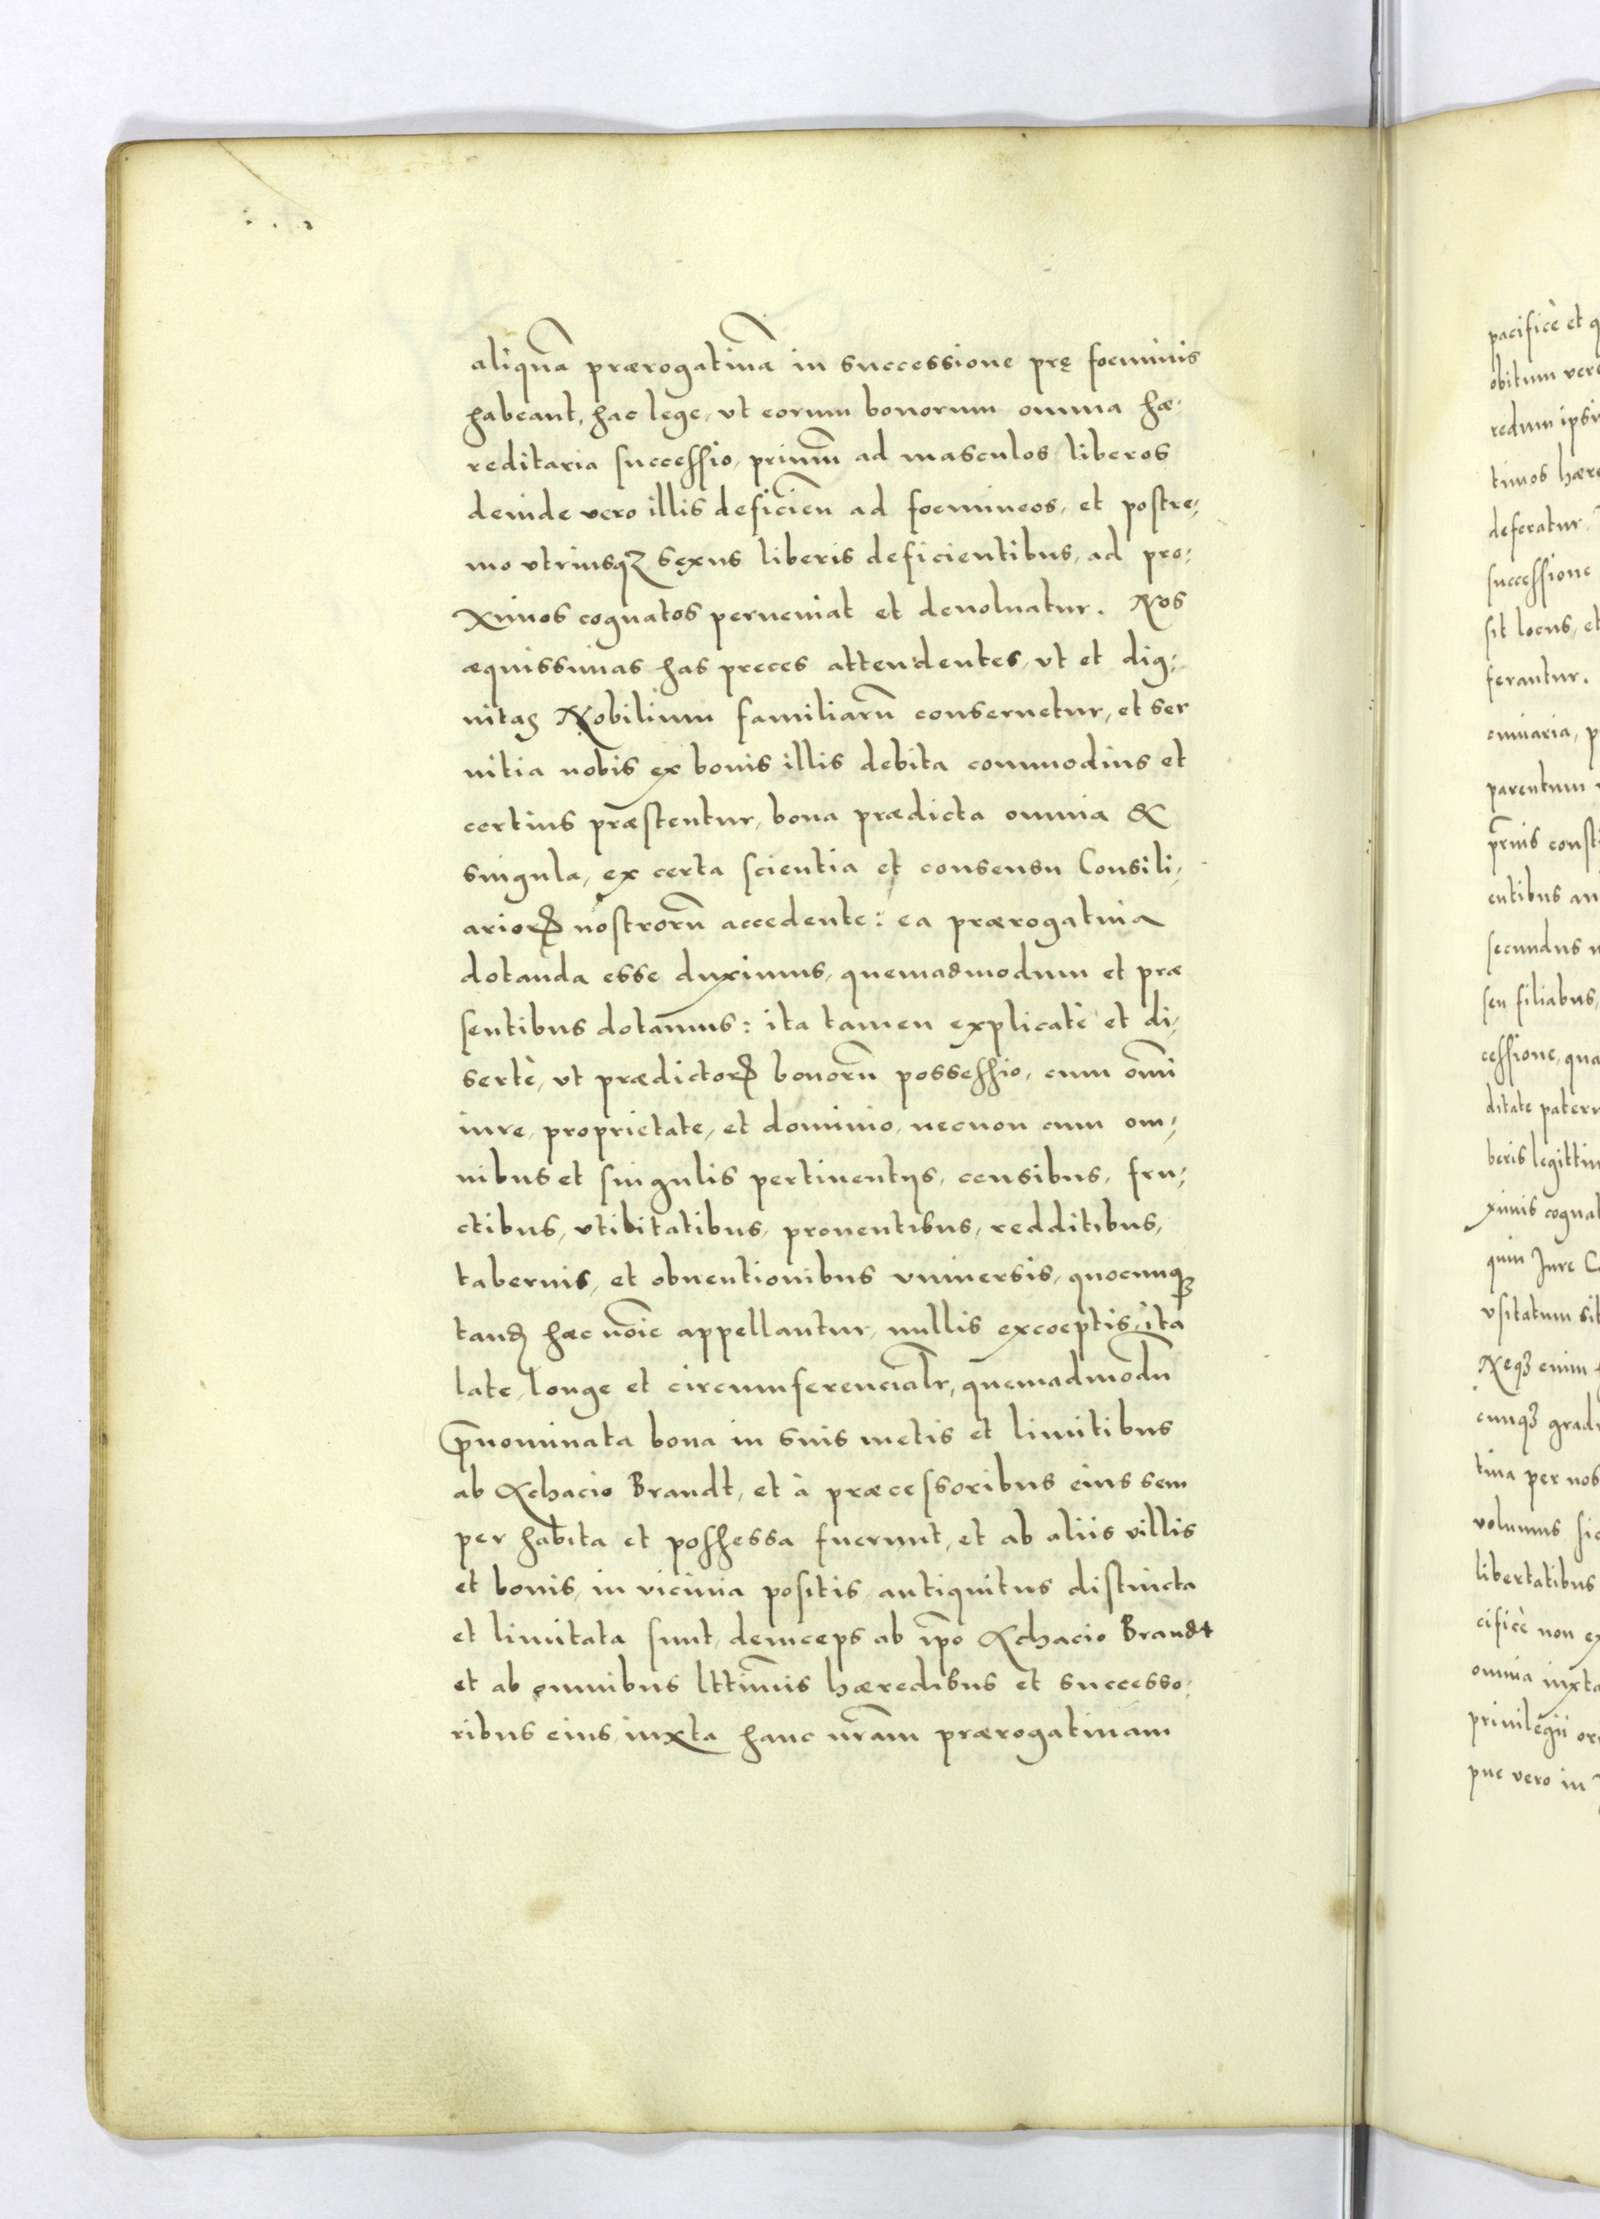 aliquã prærogatiuã in successione prę foeminis
habeant, hac lege, vt eorum bonorum omnia hæ,
reditaria successio, primũ ad masculos liberos
deinde vero illis deficieñ ad foemineos, et postre,
mo vtriusqꝫ sexus liberis deficientibus, ad pro,
ximos cognatos perueniat et deuoluatur. Nos
æquissimas has preces attendentes, vt et dig,
nitas Nobilium familiarũ conseruetur, et ser
uitia nobis ex bonis illis debita commodius et
certius præstentur, bona prædicta omnia &
singula, ex certa scientia et consensu Consili,
arioꝝ nostrorũ accedente: ea prærogatiua
dotanda esse duximus, quemadmodum et præ
sentibus dotamus: ita tamen explicatè et di,
sertè, vt prædictoꝝ bonorũ possessio, cum om̃i
iure, proprietate, et dominio, necnon cum om,
nibus et singulis pertinentijs, censibus, fru,
ctibus, vtilitatibus, prouentibus, redditibus,
tabernis, et obuentionibus vniuersis, quocunqꝫ
tandẽ hæc noīe appellantur, nullis exceptis, ita
late, longe et circumferencialr̃, quemadmodũ
p̃nominata bona in suis metis et limitibus
ab Achacio Brandt, et à præcessoribus eius sem
per habita et possessa fuerunt, et ab aliis villis
et bonis, in vicinia positis antiquitus distincta
et limitata sunt, deinceps ab ip̃o Achacio Brandt
et ab omnibus lttimis hæredibus et successo,
ribus eius, iuxta hanc nr̃am prærogatiuam
pacificè et
obitum
redum
deferatur.
successione
sit locus, et
ferantur.
parentum
entibus
secundus
seu filiabus,
cessione,
ditate
beris
ximis
quin Jure
vsitatum sit
Neqꝫ enim
cunqꝫ
tiua per nos
volumus
libertatibus
cificè non
omnia iuxta
priuilegii
pue vero in